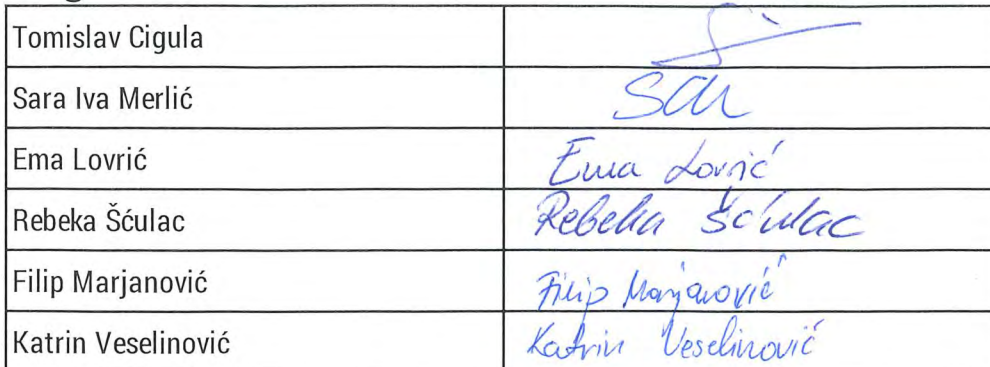 Tomislav Cigula
Sara Iva Merlić
Ema Lovrić Ema Lovrić
Rebeka Šćulac Rebeka Šćulac
Filip Marjanović Filip Marjanović
Katrin Veselinović Katrin Veselinović